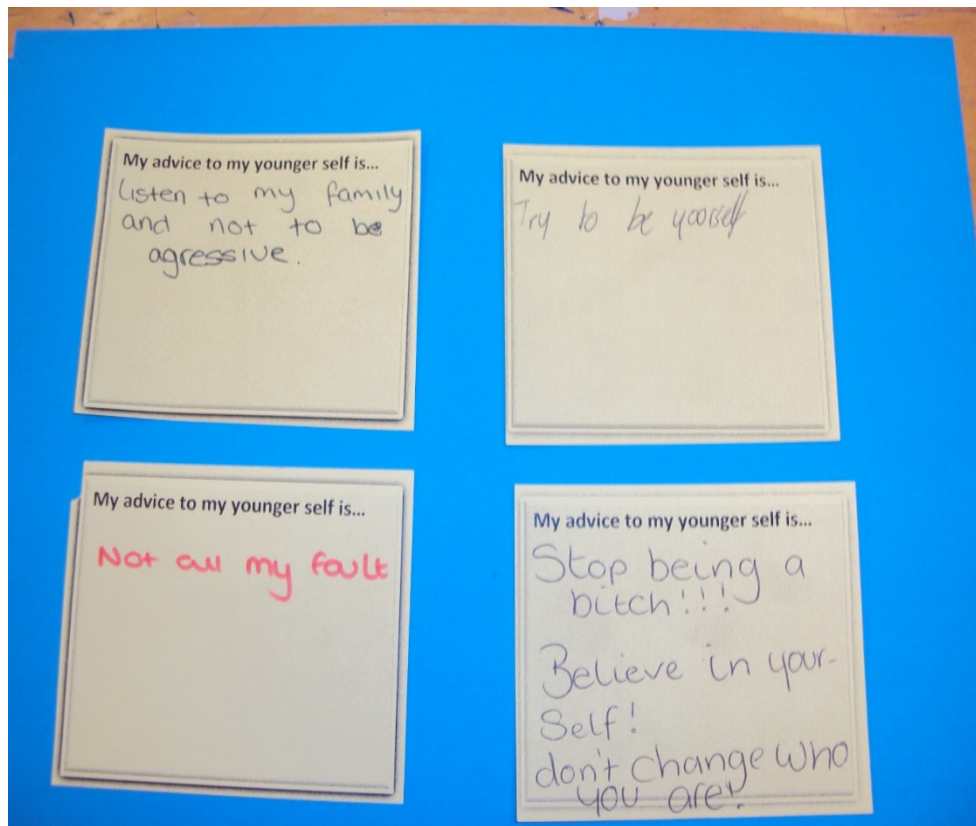 My advice to my younger self is...
Listen to my family
and not to be
agressive.
My advice to my younger self is...
Try to be yoorself
My advice to my younger self is...
Not all my fault
My advice to my younger self is...
Stop being a
bitch!!!
Believe in your-
Self!
don't change who
you are!